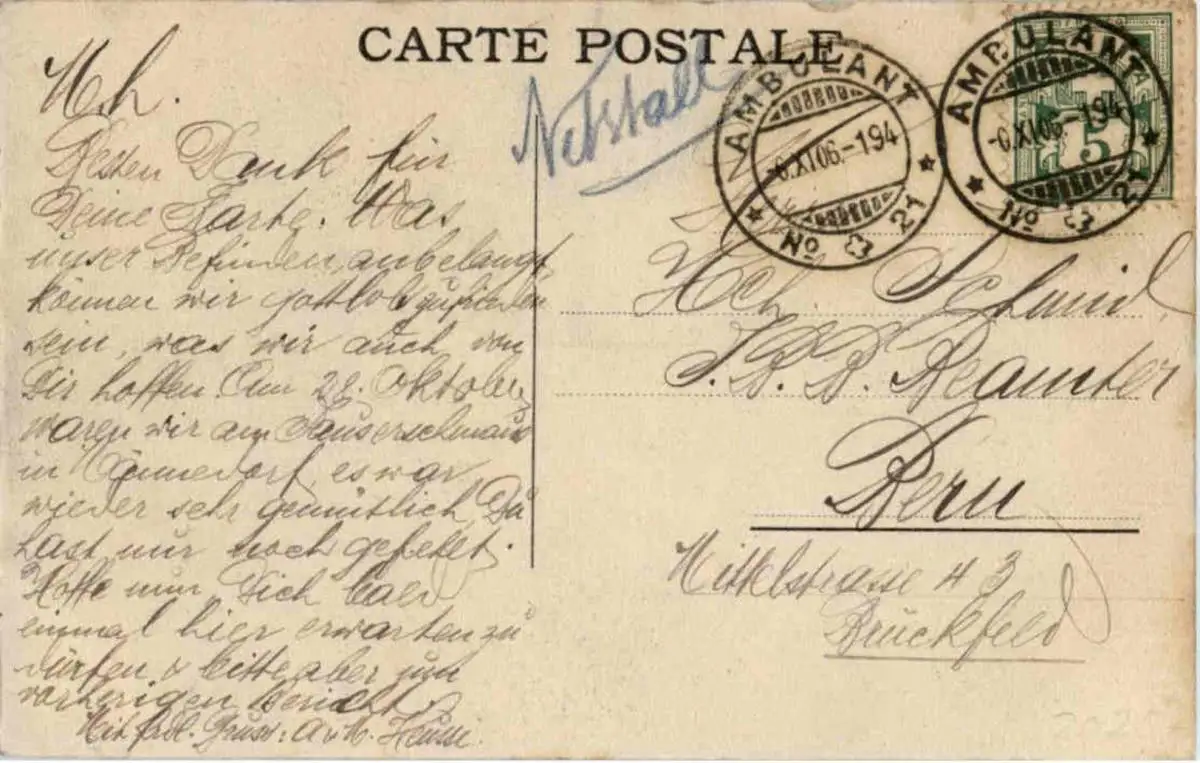 CARTE POSTALE
Netstall
AMBULANT
-6.XI.06.-194
No 21
AMBULANT
-6.XI.06.-194
No 21
5
M. h.
Besten Dank für
Deine Karte. Was
unser Befinden anbelangt,
können wir gottlob zufrieden
sein, was wir auch von
Dir hoffen. Am 28. Oktober
waren wir am Sauserschmaus
in Männedorf, es war
wieder sehr gemütlich, Du
hast nur noch gefehlt.
Hoffe nun Dich bald
einmal hier erwarten zu
dürfen & bitte aber um
vorherigen Bericht.
Mit frdl. Gruss:
Hch. Schmid
S.B.B. Beamter
Bern
Mittelstrasse 43
Brückfeld